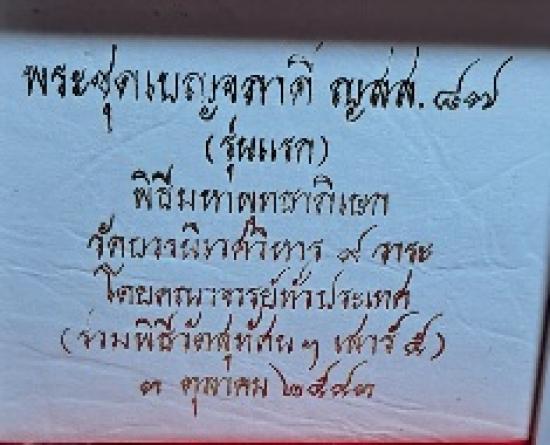 พระชุดเบญจภาคี ญสส. ๘๓
(รุ่นแรก)
พิธีมหาพุทธาภิเษก
วัดบวรนิเวศวิหาร ๙ วาระ
โดยคณาจารย์ทั่วประเทศ
(ร่วมพิธีวัดสุทัศนฯ เสาร์ ๕)
๓ ตุลาคม ๒๕๔๓